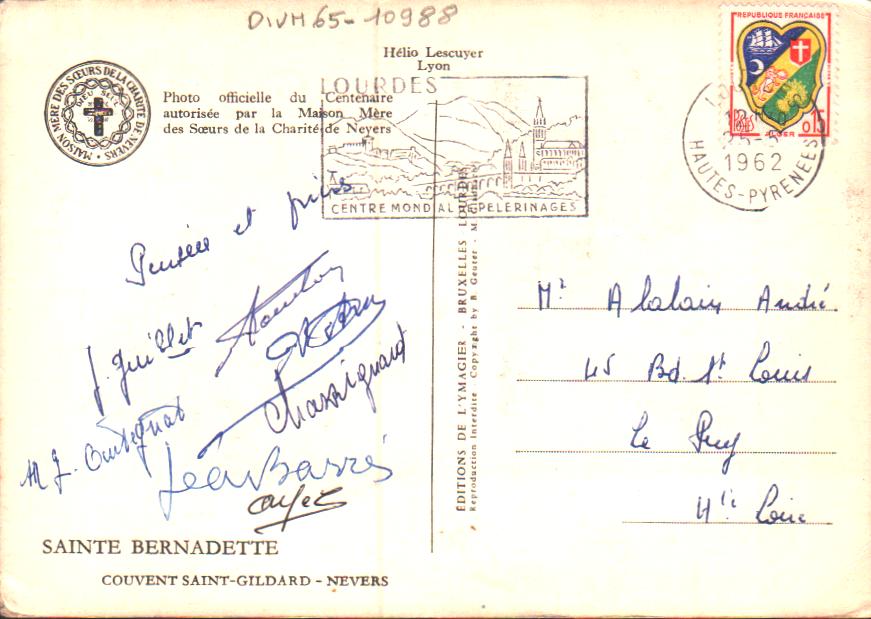 DIVH65-10988
Hélio Lescuyer
Lyon
MAISON MÈRE DES SŒURS DE LA CHARITÉ DE NEVERS
Photo officielle du Centenaire
autorisée par la Maison Mère
des Sœurs de la Charité de Nevers
LOURDES
CENTRE MONDIAL PELERINAGES
REPUBLIQUE FRANÇAISE
ALGER 0,15
1962
HAUTES-PYRENEES
Pensées et prières
J. Juillet
Chassignard
M J.
Jean Barrès
SAINTE BERNADETTE
COUVENT SAINT-GILDARD - NEVERS
ÉDITIONS DE L'YMAGIER - BRUXELLES LOURDES
Reproduction Interdite Copyright by B. Geuter - M.
Mr Alalain André
45 Bd. St Louis
Le Puy
Hte Loire